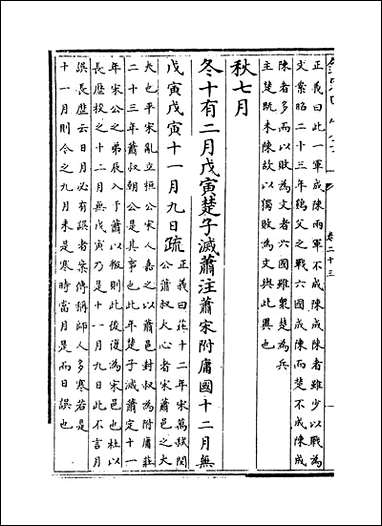 正義曰此一軍成陳兩軍不成陳成陳者雖少以戰為
文案昭二十三年鷄父之戰六國成陳而楚不成陳成
陳者多而以敗為文者六國雖衆楚為兵
主楚既未陳故以獨敗為文與此異也
秋七月
冬十有二月戊寅楚子滅蕭注蕭宋附庸國十二月無
戊寅戊寅十一月九日疏正義曰莊十二年宋萬弑閔
公蕭叔大心者宋蕭邑之大
夫也平宋亂立桓公宋人嘉之以蕭邑封叔為附庸莊
二十三年蕭叔朝公是其事也此年楚子滅蕭定十一
年宋公之弟辰入于蕭以叛則此後復為宋邑也杜以
長歴校之十二月無戊寅乃是十一月九日此不言月
誤長歴云日月必有誤者案傳稱師人多寒若是
十一月則今之九月未是寒時當月是而日誤也
卷二十三